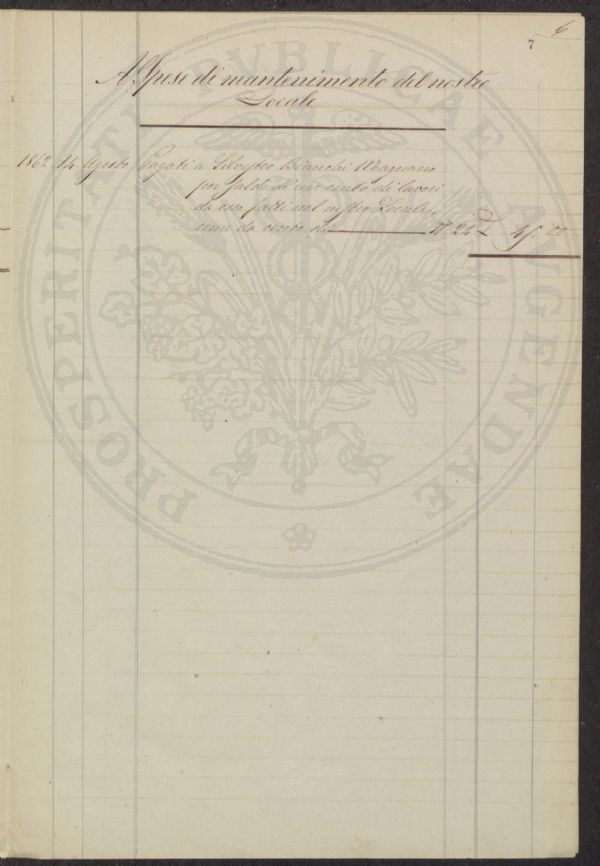 6
7
A Spese di mantenimento del nostro
Locale
1862 14 Agosto Pagati a Silvestro Bianchi
per saldo di un conto di lavori
da esso fatti nel nostro Locale,
come da conto N° 24 £ 45
PROSPERITATI PVBLICAE AVGENDAE